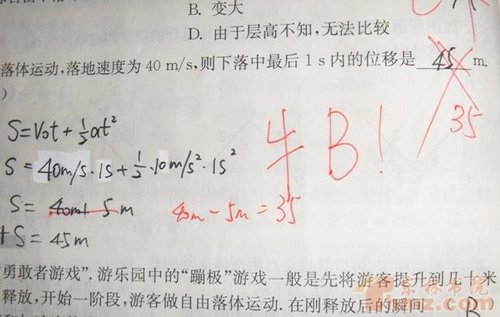 B. 变大
D. 由于层高不知,无法比较
落体运动,落地速度为 40 m/s,则下落中最后 1 s 内的位移是 45 m.
35
)
S=V₀t+½at²
牛B!
S=40m/s·1s+½·10m/s²·1s²
S= 40m+ 5m
40m-5m=35
S=45m
勇敢者游戏”. 游乐园中的“蹦极”游戏一般是先将游客提升到几十米
释放,开始一阶段,游客做自由落体运动. 在刚释放后的瞬间
B